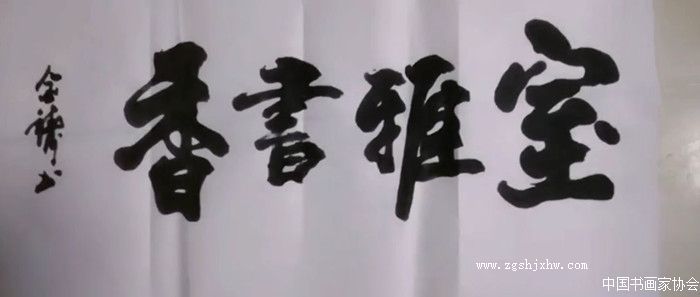 室雅書香
金鏞书
www.zgshjxhw.com
中国书画家协会